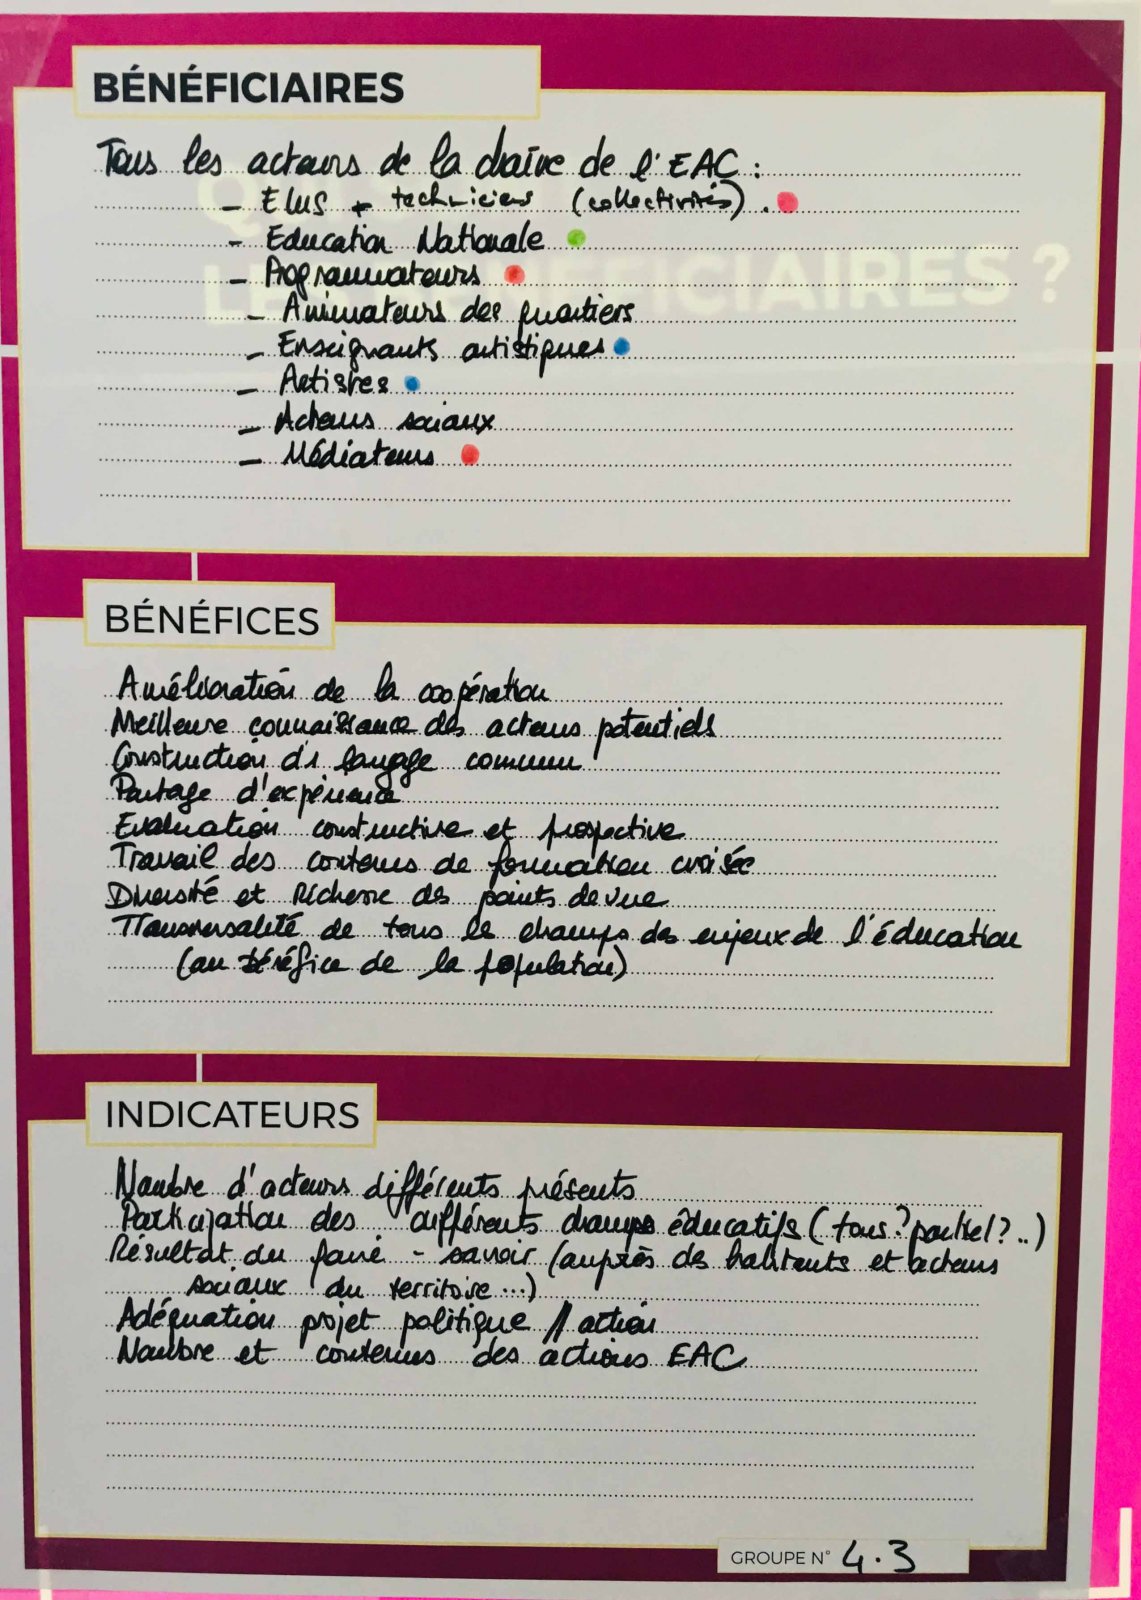 BÉNÉFICIAIRES
Tous les acteurs de la chaîne de l'EAC :
- Elus + techniciens (collectivités).
- Education Nationale
- Programmateurs
- Animateurs des quartiers
- Enseignants artistiques
- Artistes
- Acteurs sociaux
- Médiateurs
LES BÉNÉFICIAIRES ?
BÉNÉFICES
Amélioration de la coopération
Meilleure connaissance des acteurs potentiels
Construction d'1 langage commun
Partage d'expérience
Evaluation constructive et prospective
Travail des contenus de formation croisée
Diversité et richesse des points de vue
Transversalité de tous les champs des enjeux de l'éducation
(au bénéfice de la population)
INDICATEURS
Nombre d'acteurs différents présents
Participation des différents champs éducatifs (tous? partiel?..)
Résultat du faire-savoir (auprès des habitants et acteurs
sociaux du territoire...)
Adéquation projet politique // action
Nombre et contenus des actions EAC
GROUPE N° 4.3